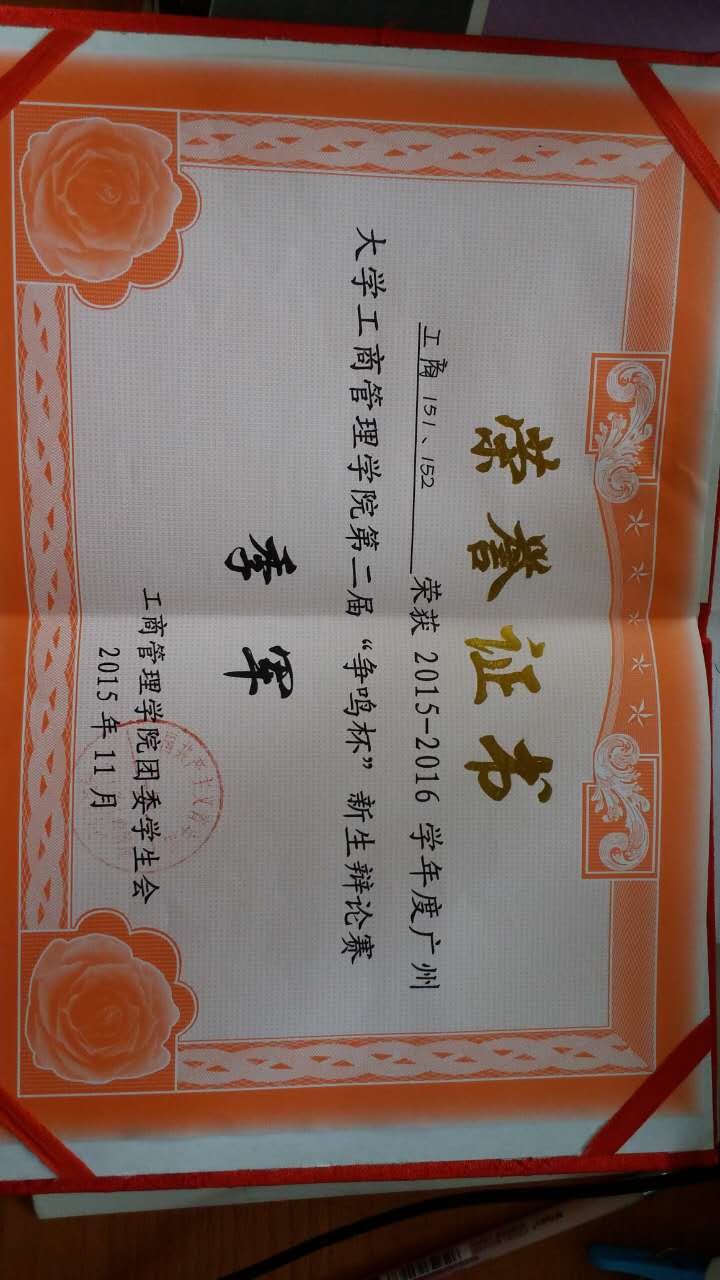 荣誉证书
工商151、152 荣获 2015-2016 学年度广州
大学工商管理学院第二届“争鸣杯”新生辩论赛
季军
工商管理学院团委学生会
2015 年 11 月